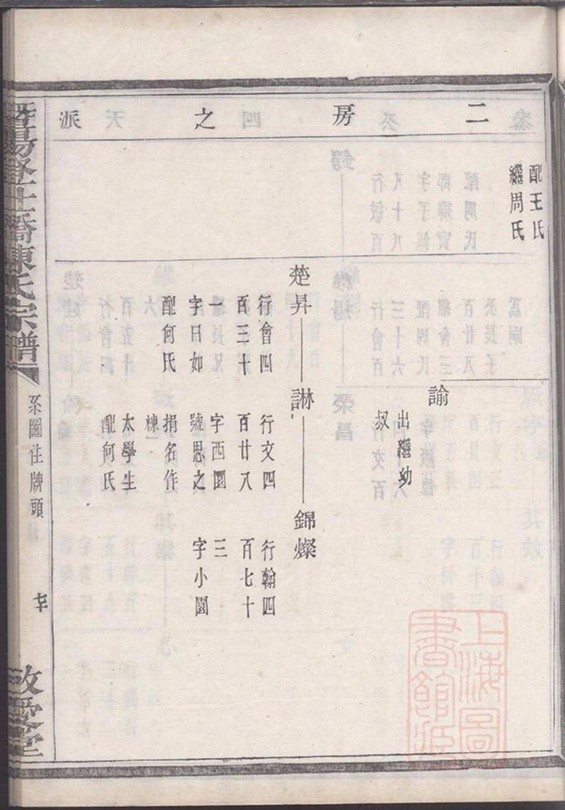 二房之四派
配王氏
繼周氏
諭
出繼幼
叔
楚昇
諃
錦燦
行會四
百三十
字日如
配何氏
行文四
百廿八
字西園
號思之
捐名作
棟
太學生
配何氏
行翰四
百七十
三
字小園
陳氏宗譜
系圖
牌頭
上海圖
書館藏